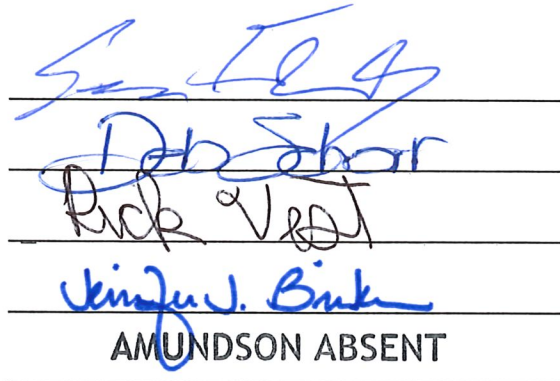 Deb Schorr
Rick Vest
Jennifer J. Brink
AMUNDSON ABSENT